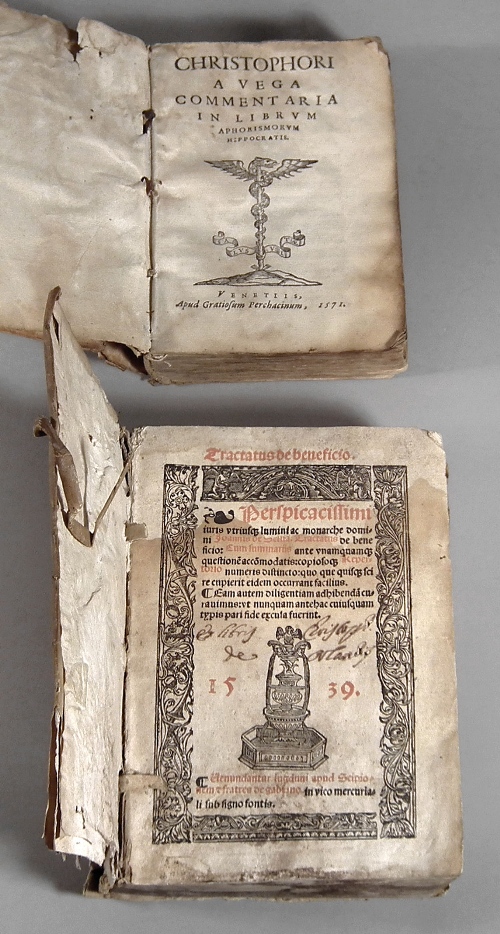 CHRISTOPHORI
A VEGA
COMMENTARIA
IN LIBRVM
APHORISMORVM
HIPPOCRATIS.
VENETIIS,
Apud Gratiosum Perchacinum, 1571.
Tractatus de beneficio.
Perspicacissimi
iuris vtriusq; lumini ac monarche domi-
ni Joannis de Selua Tractatus de bene
ficio: Cum summariis ante vnamquamq;
questionē accōmodatis: copiosoq; Reper-
torio numeris distincto: quo que quisq; sci
re cupierit eidem occurrant facilius.
¶ Eam autem diligentiam adhibendā cu-
rauimus: vt nunquam antehac cuiusquam
typis pari fide excusa fuerint.
Ex libris
de
15 39.
¶ Venundantur lugduni apud Scipio-
nem & fratres de gabiano in vico mercuria-
li sub signo fontis.